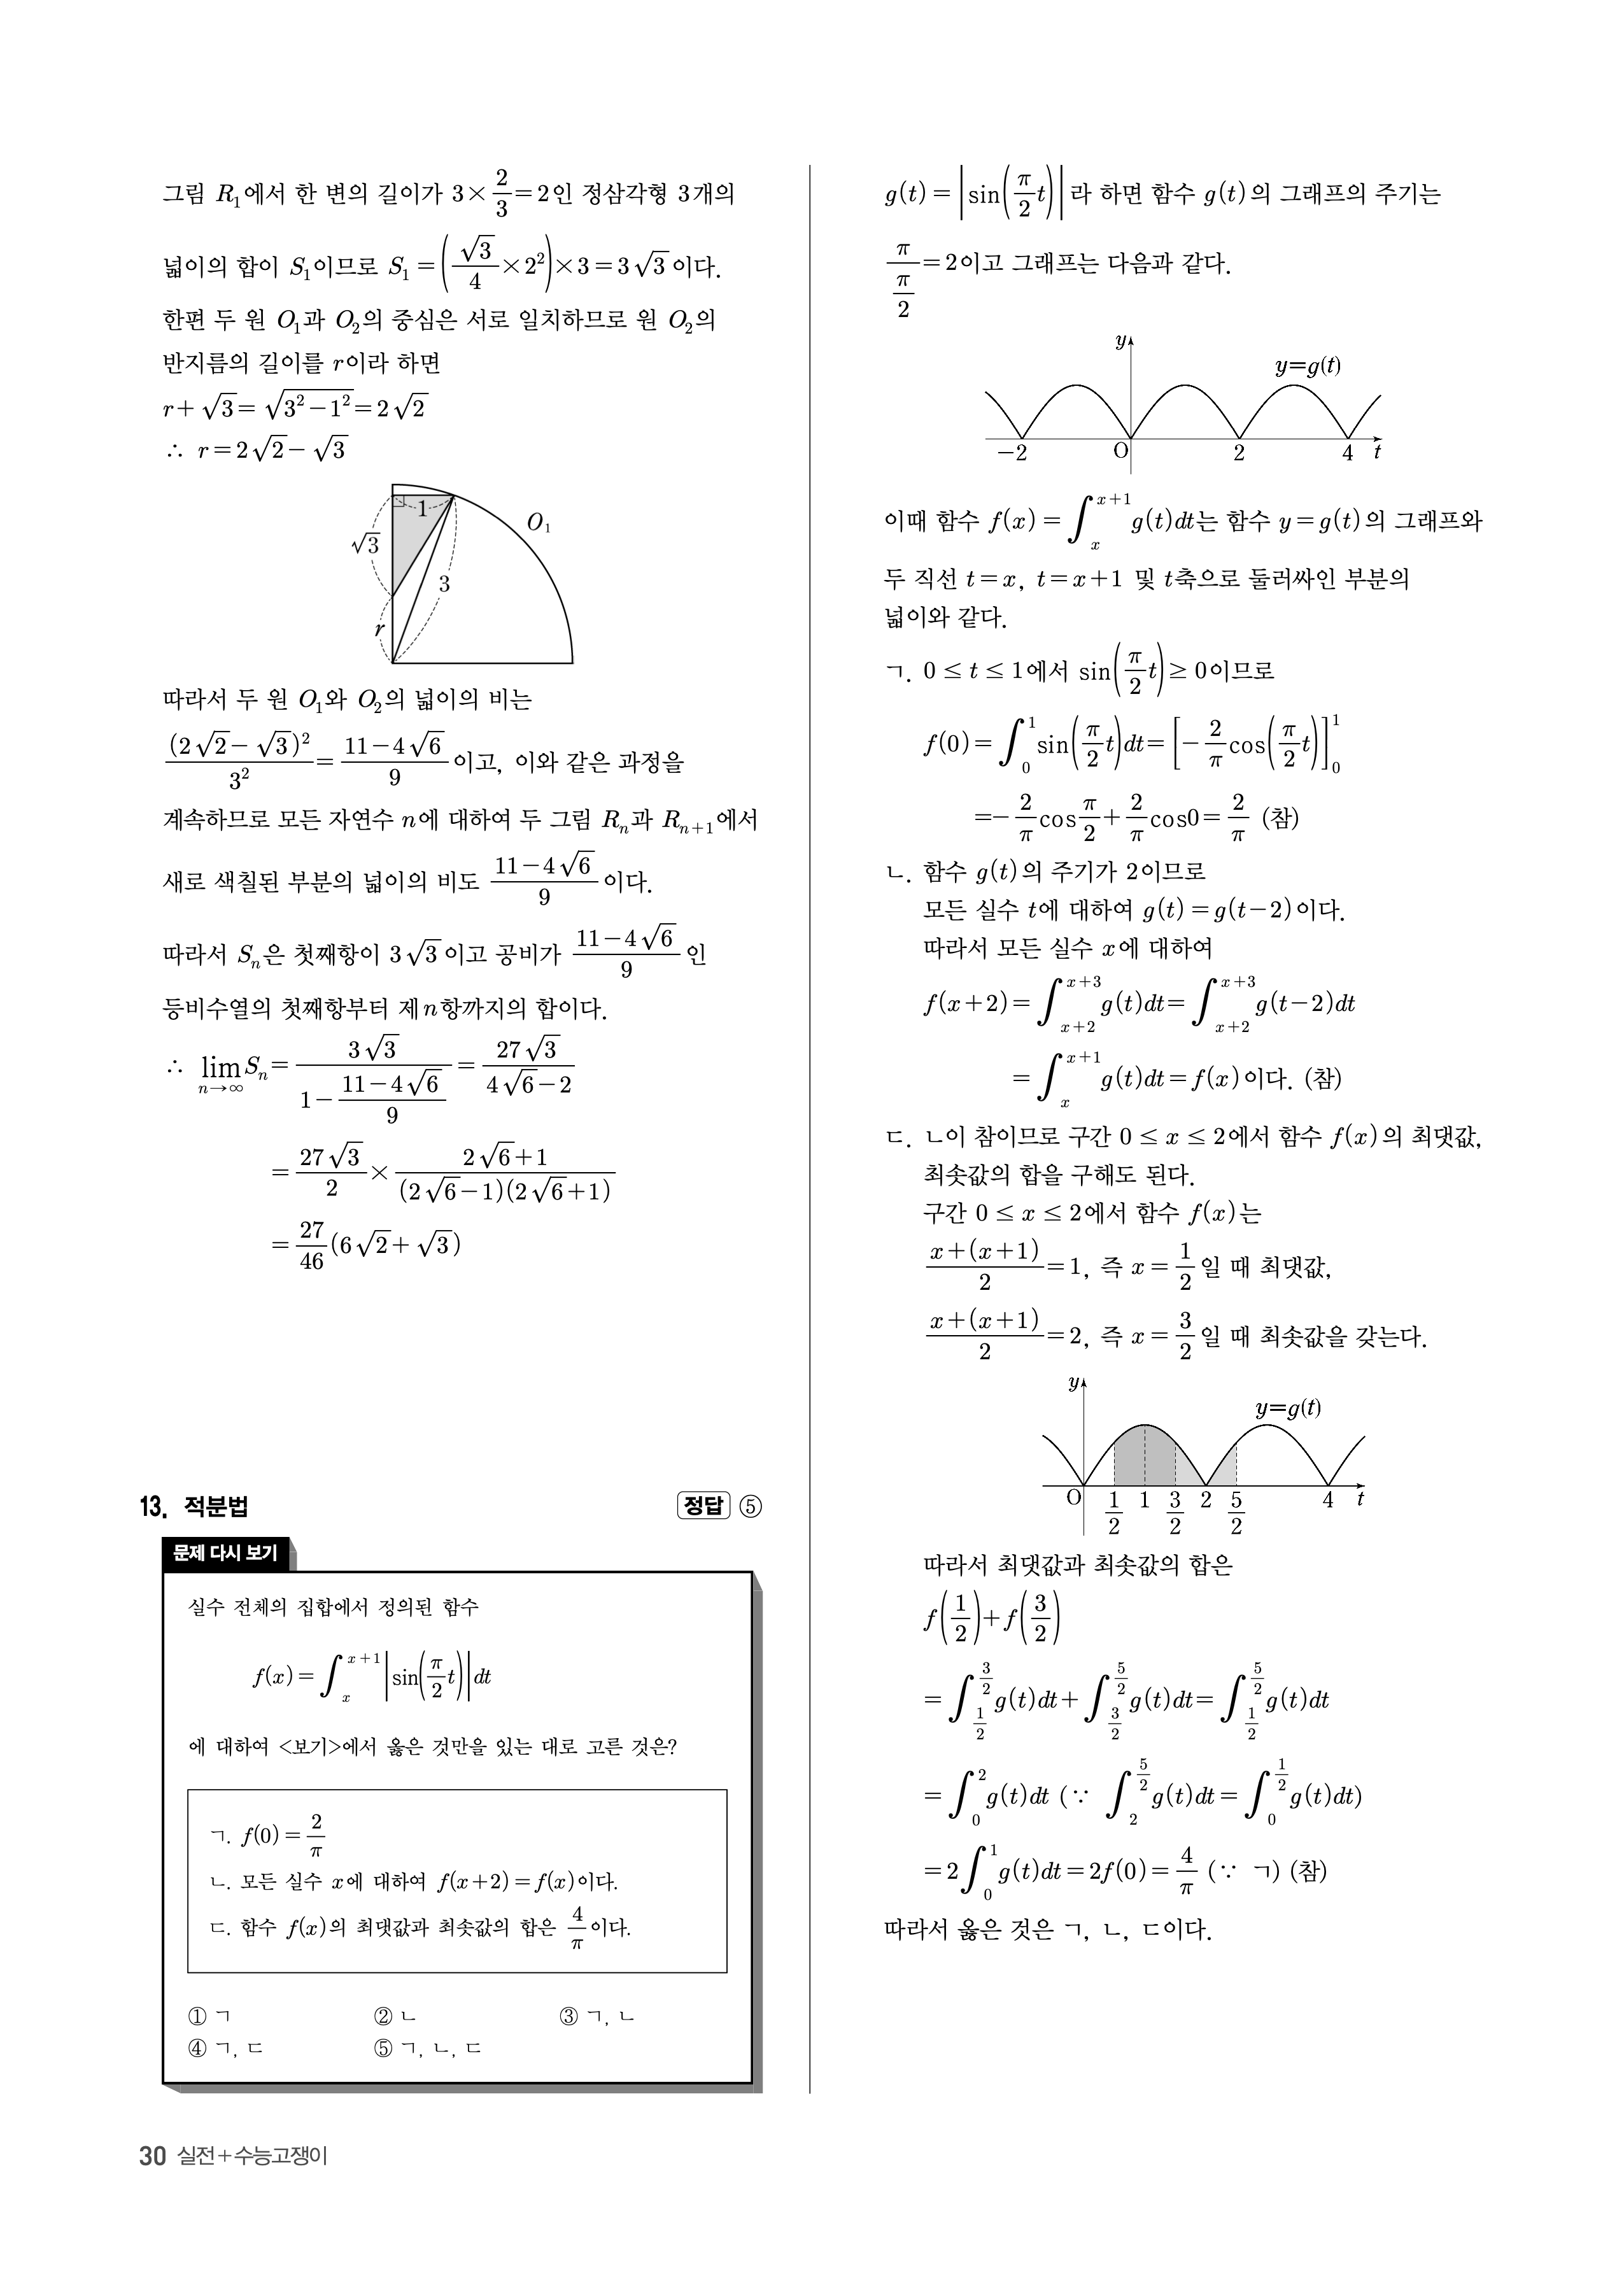 그림 R₁에서 한 변의 길이가 3×2/3=2인 정삼각형 3개의
넓이의 합이 S₁이므로 S₁=(√3/4×2²)×3=3√3이다.
한편 두 원 O₁과 O₂의 중심은 서로 일치하므로 원 O₂의
반지름의 길이를 r이라 하면
r+√3=√(3²-1²)=2√2
∴ r=2√2-√3
1
O₁
√3
3
r
따라서 두 원 O₁와 O₂의 넓이의 비는
(2√2-√3)²/3²=(11-4√6)/9이고, 이와 같은 과정을
계속하므로 모든 자연수 n에 대하여 두 그림 Rₙ과 Rₙ₊₁에서
새로 색칠된 부분의 넓이의 비도 (11-4√6)/9이다.
따라서 Sₙ은 첫째항이 3√3이고 공비가 (11-4√6)/9인
등비수열의 첫째항부터 제n항까지의 합이다.
∴ lim_{n→∞} Sₙ=3√3/(1-(11-4√6)/9)=27√3/(4√6-2)
=27√3/2×(2√6+1)/((2√6-1)(2√6+1))
=27/46(6√2+√3)
13. 적분법 정답 ⑤
문제 다시 보기
실수 전체의 집합에서 정의된 함수
f(x)=∫_x^{x+1}|sin(π/2 t)|dt
에 대하여 <보기>에서 옳은 것만을 있는 대로 고른 것은?
ㄱ. f(0)=2/π
ㄴ. 모든 실수 x에 대하여 f(x+2)=f(x)이다.
ㄷ. 함수 f(x)의 최댓값과 최솟값의 합은 4/π이다.
① ㄱ ② ㄴ ③ ㄱ, ㄴ
④ ㄱ, ㄷ ⑤ ㄱ, ㄴ, ㄷ
g(t)=|sin(π/2 t)|라 하면 함수 g(t)의 그래프의 주기는
π/(π/2)=2이고 그래프는 다음과 같다.
y
y=g(t)
-2 O 2 4 t
이때 함수 f(x)=∫_x^{x+1}g(t)dt는 함수 y=g(t)의 그래프와
두 직선 t=x, t=x+1 및 t축으로 둘러싸인 부분의
넓이와 같다.
ㄱ. 0≤t≤1에서 sin(π/2 t)≥0이므로
f(0)=∫_0^1 sin(π/2 t)dt=[-2/π cos(π/2 t)]_0^1
=-2/π cos π/2+2/π cos0=2/π (참)
ㄴ. 함수 g(t)의 주기가 2이므로
모든 실수 t에 대하여 g(t)=g(t-2)이다.
따라서 모든 실수 x에 대하여
f(x+2)=∫_{x+2}^{x+3}g(t)dt=∫_{x+2}^{x+3}g(t-2)dt
=∫_x^{x+1}g(t)dt=f(x)이다. (참)
ㄷ. ㄴ이 참이므로 구간 0≤x≤2에서 함수 f(x)의 최댓값,
최솟값의 합을 구해도 된다.
구간 0≤x≤2에서 함수 f(x)는
(x+(x+1))/2=1, 즉 x=1/2일 때 최댓값,
(x+(x+1))/2=2, 즉 x=3/2일 때 최솟값을 갖는다.
y
y=g(t)
O 1/2 1 3/2 2 5/2 4 t
따라서 최댓값과 최솟값의 합은
f(1/2)+f(3/2)
=∫_{1/2}^{3/2}g(t)dt+∫_{3/2}^{5/2}g(t)dt=∫_{1/2}^{5/2}g(t)dt
=∫_0^2 g(t)dt (∵ ∫_2^{5/2}g(t)dt=∫_0^{1/2}g(t)dt)
=2∫_0^1 g(t)dt=2f(0)=4/π (∵ ㄱ) (참)
따라서 옳은 것은 ㄱ, ㄴ, ㄷ이다.
30 실전+수능고쟁이